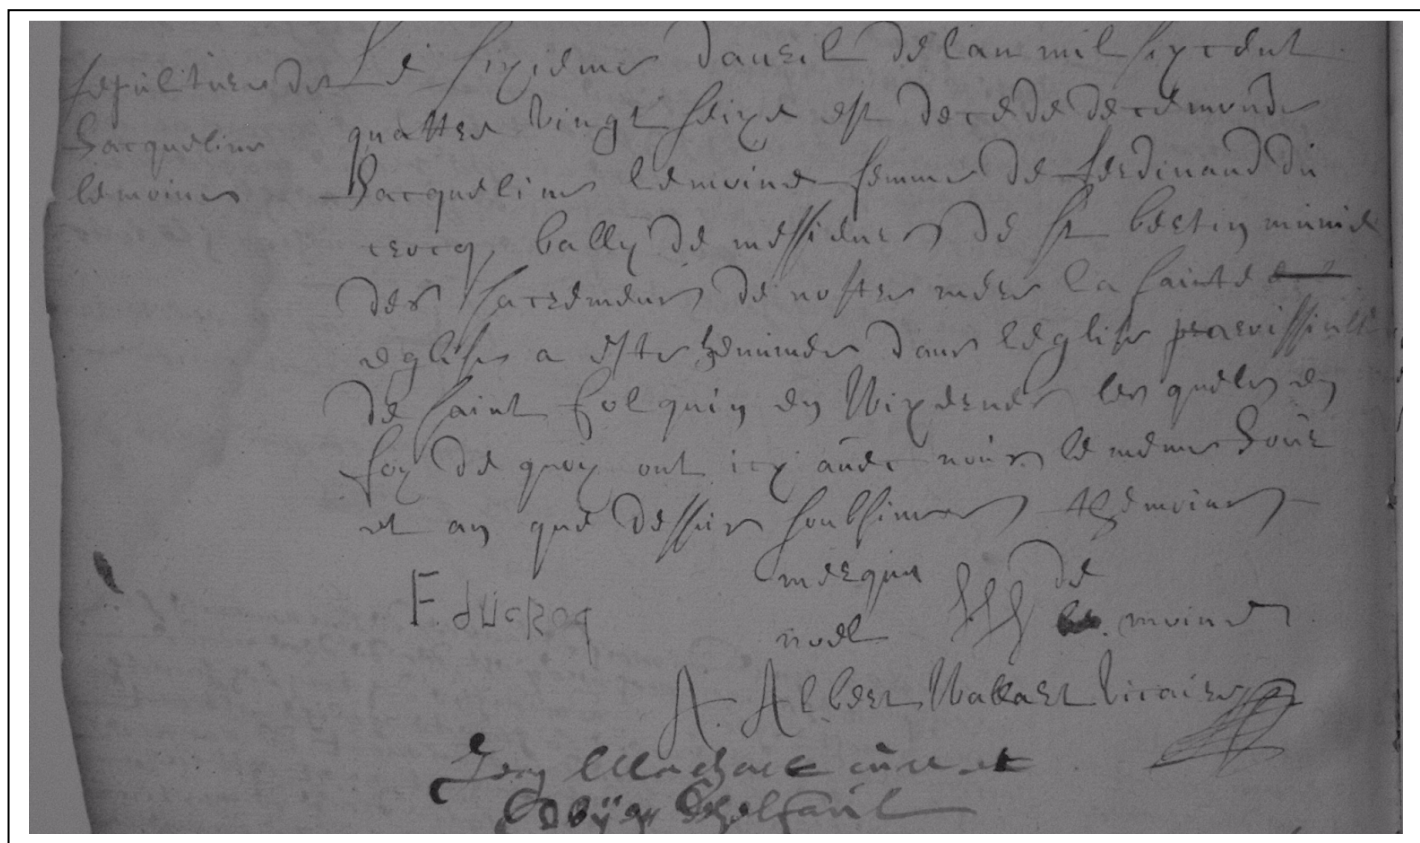 sepulture de
Jacqueline
lemoine
Le sixieme d'avril de lan mil six cent
quattre vingt seize est decede de ce monde
Jacqueline lemoine femme de ferdinand du
crocq bally de messieurs de st bertin munie
des sacremens de nostre mere la sainte
eglise a este inhumee dans leglise paroissialle
de saint folquin en Wixerne les quels en
foy de quoy ont icy avec nous le meme Jour
et an que dessus soubsignes themoins
F. dUcRoq
merque de
noel le moine
A. Albert Wallart Vicaire